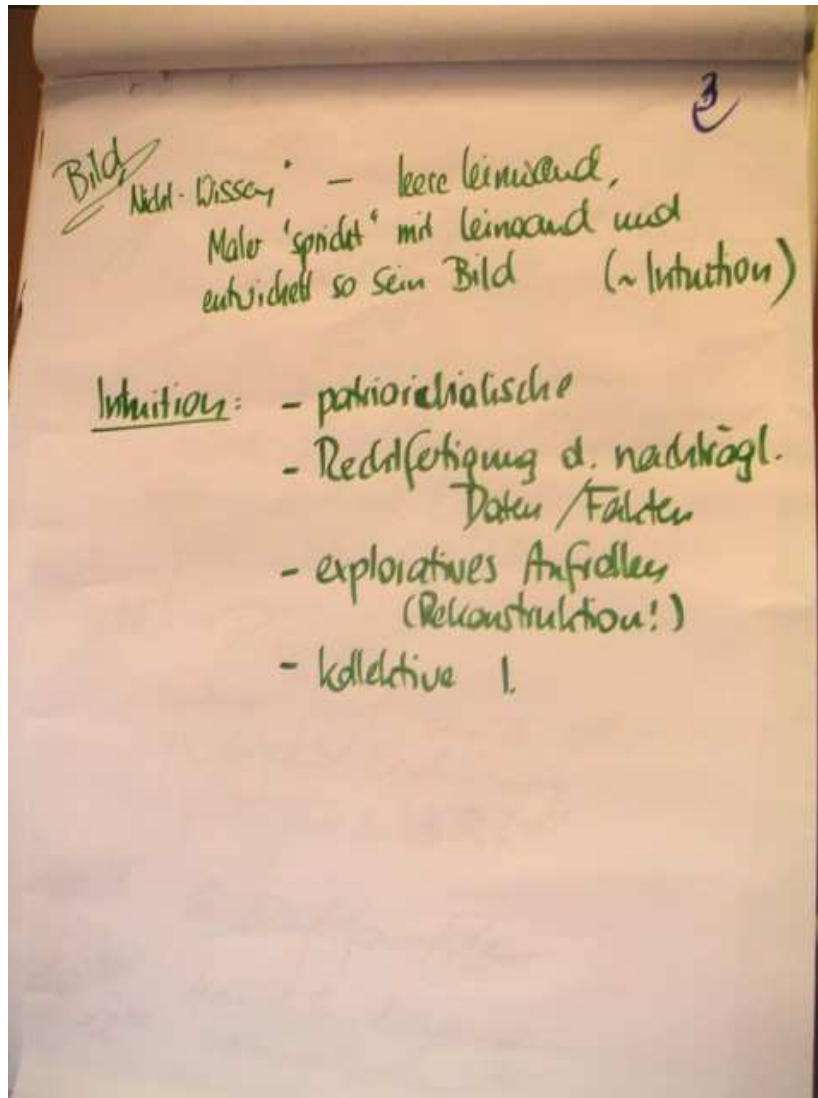 3
Bild
„Nicht-Wissen" – leere Leinwand,
Maler „spricht" mit Leinwand und
entwickelt so sein Bild (~ Intuition)
Intuition: - patriarchalische
- Rechtfertigung d. nachträgl.
Daten / Fakten
- exploratives
(Rekonstruktion!)
- kollektive I.